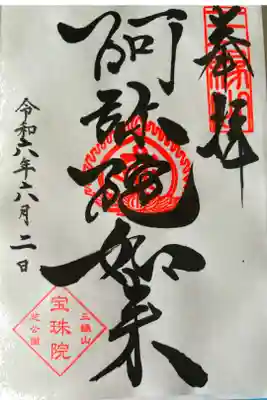 奉拝
阿弥陀如来
令和六年六月二日
三縁山
宝珠院
芝公園